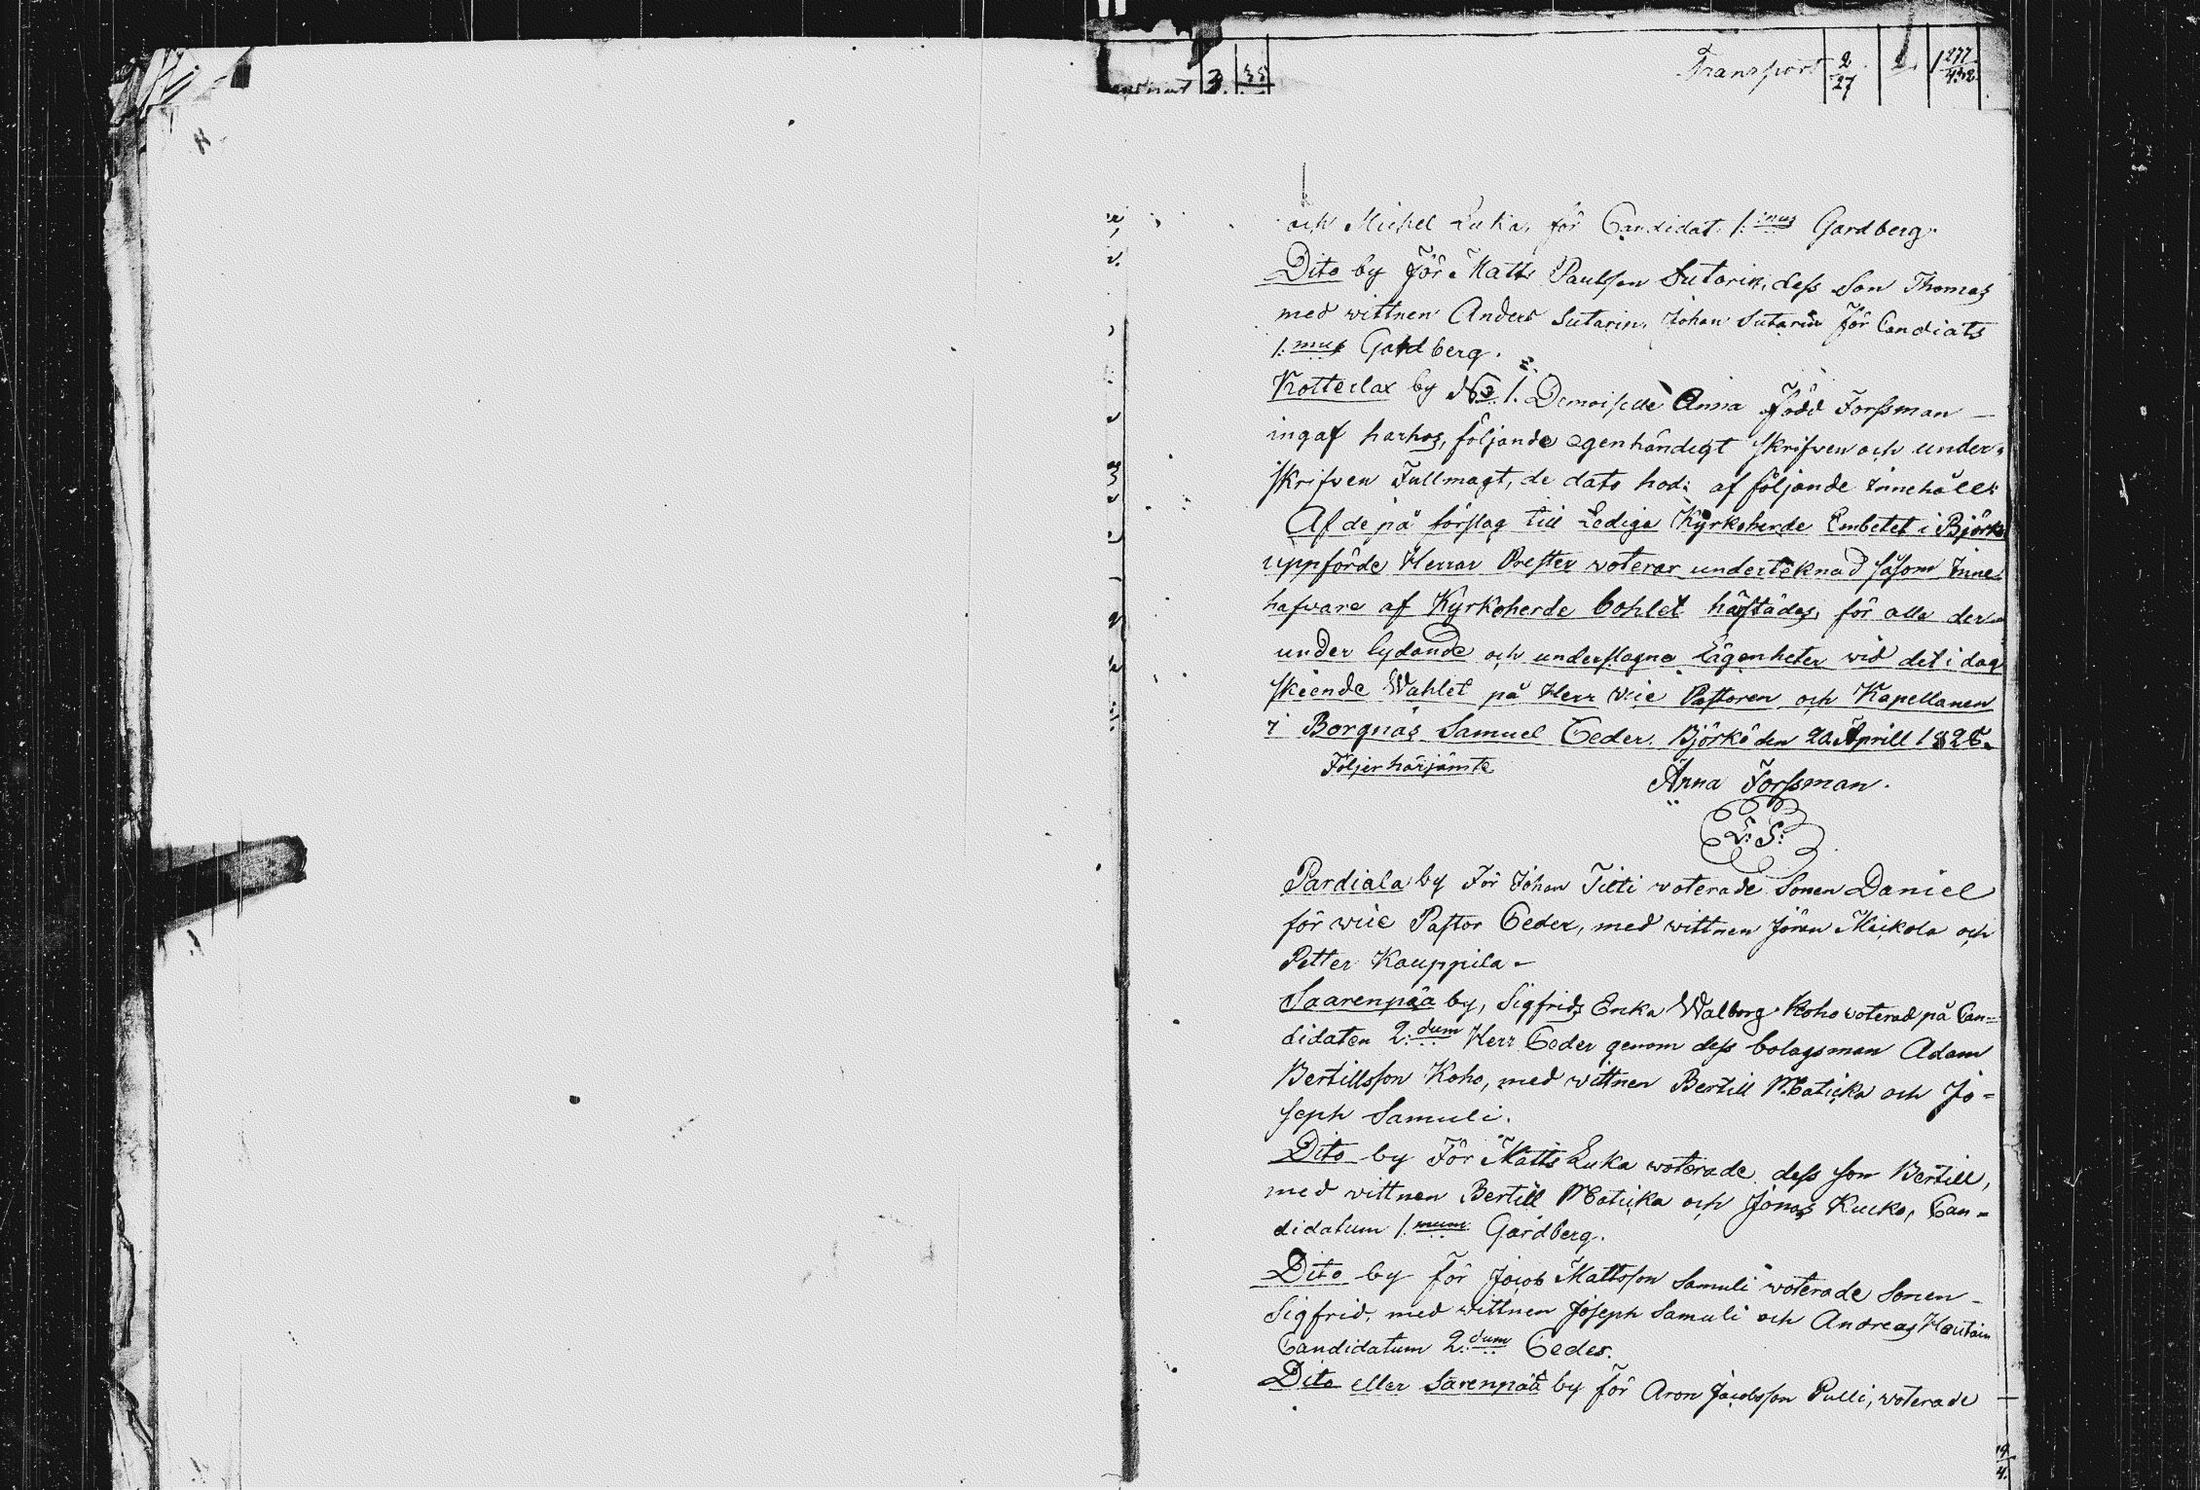 Transport 2/27 1277/432
och Michel Luka, för Candidat 1:mus Gardberg.
Dito by För Matts Paulsson Sutarin, dess Son Thomas
med wittnen Anders Sutarin, Johan Sutarin För Candiats
1:mus Gardberg.
Rotterlax by No 1. Demoiselle Anna Född Forssman
ingaf harhos, följande egenhändigt skrifven och under-
skrifven Fullmagt, de dato hod: af följande innehåll:
Af de på förslag till Lediga Kyrkoherde Embetet i Björkö
uppförde Herrar Prester voterar underteknad såsom Inne-
hafvare af Kyrkoherde bohlet härstädes, för alla der-
under lydande och underslagne Lägenheter wid det i dag
skeende Wahlet på Herr Vice Pastoren och Kapellanen
i Borgnäs Samuel Ceder. Björkö den 20 Aprill 1825.
Följer härjämte
Anna Forssman.
L: S:
Pardiala by För Johan Titti voterade Sonen Daniel
för wice Pastor Ceder, med wittnen Jöran Meikola och
Petter Kauppila
Saarenpää by, Sigfrids Enka Walborg Koho voterad på Can=
didaten 2:dum Herr Ceder genom dess bolagsman Adam
Bertillsson Koho, med vittnen Bertill Maticka och Jo=
seph Samuli.
Dito by För Matts Luka voterade dess son Bertill,
med vittnen Bertill Maticka och Jonas Kucko, Can=
didatum 1:mum Gardberg.
Dito by för Jacob Mattsson Samuli voterade Sonen
Sigfrid, med wittnen Joseph Samuli och Andreas
Candidatum 2:dum Ceder.
Dito eller Sarenpää by för Aron Jacobsson Pulli, voterade